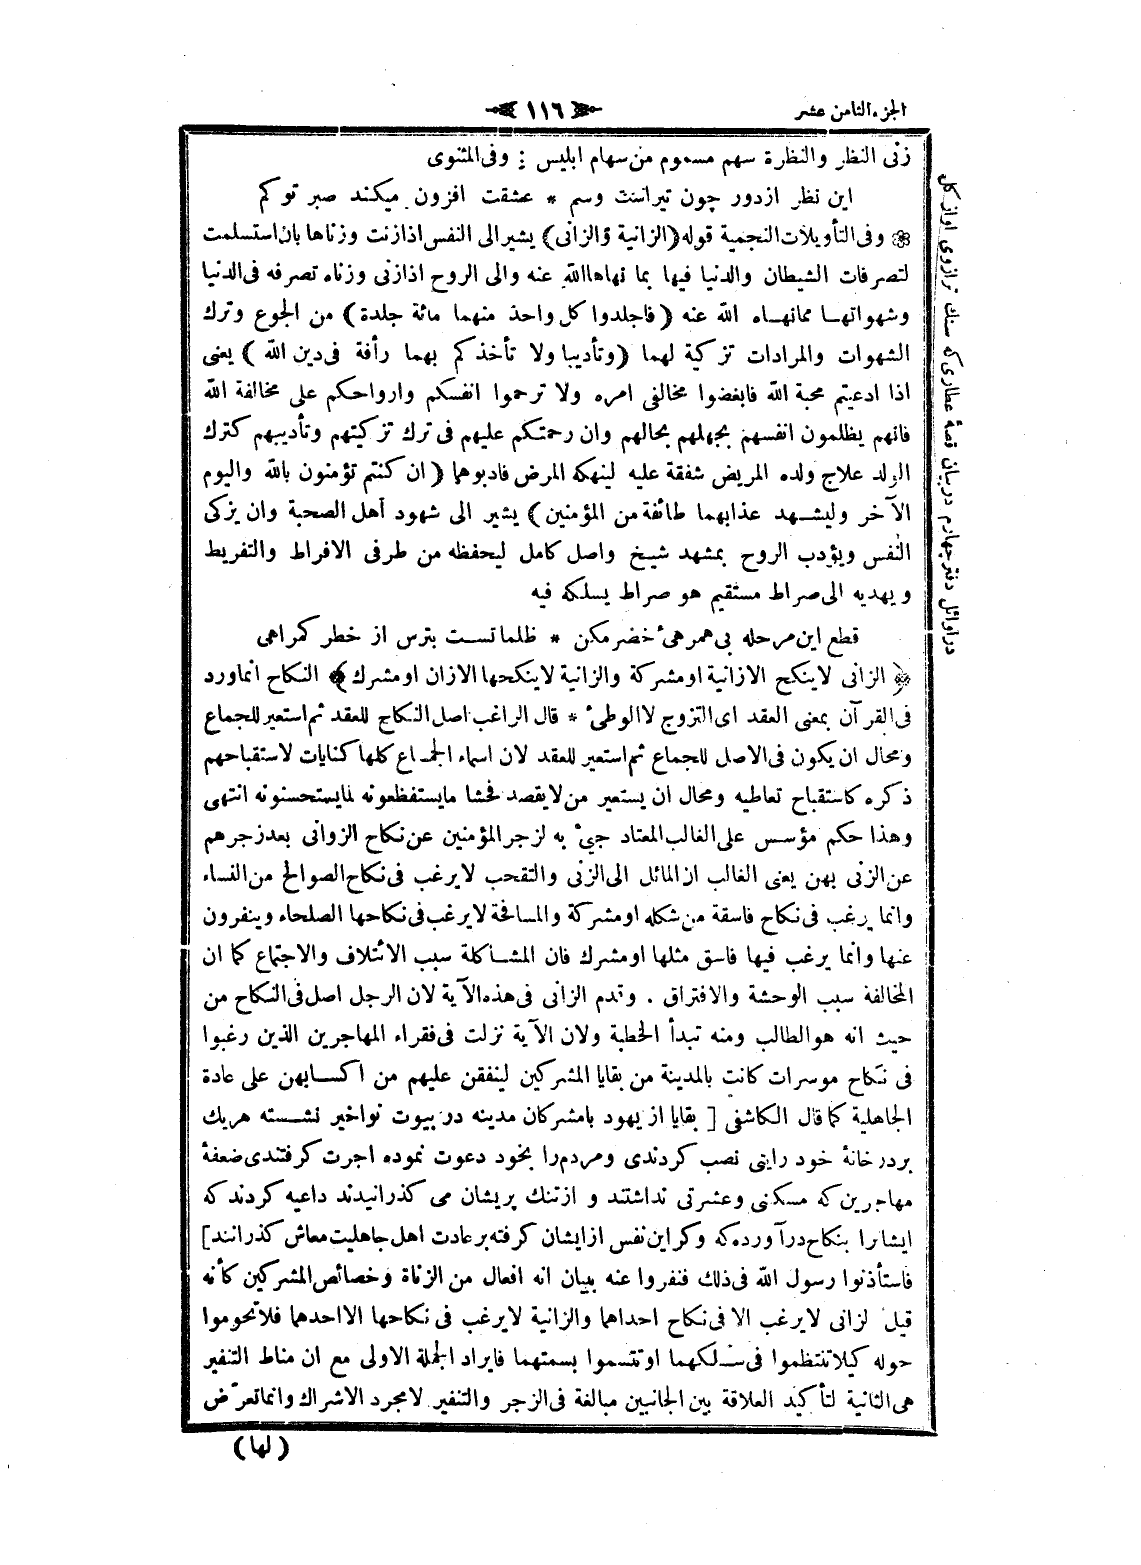 الجزء الثامن عشر
١١٦
زنى النظر والنظرة سهم مسموم من سهام ابليس : وفى المثنوى
اين نظر ازدور چون تيراست وسم * عشقت افزون ميكند صبر توكم
وفى التأويلات النجمية قوله (الزانية والزانى) يشير الى النفس اذا زنت وزناها بان استسلمت
لتصرفات الشيطان والدنيا فيها بما نهاها الله عنه والى الروح اذا زنى وزناه تصرفه فى الدنيا
وشهواتها مما نهاه الله عنه (فاجلدوا كل واحد منهما مائة جلدة) من الجوع وترك
الشهوات والمرادات تزكية لهما (وتأديبا ولا تأخذكم بهما رأفة فى دين الله) يعنى
اذا ادعيتم محبة الله فابغضوا مخالفى امره ولا ترحموا انفسكم وارواحكم على مخالفة الله
فانهم يظلمون انفسهم بجهلهم بحالهم وان رحمتكم عليهم فى ترك تزكيتهم وتأديبهم كترك
الولد علاج ولده المريض شفقة عليه لينهكه المرض فادبوهما (ان كنتم تؤمنون بالله واليوم
الآخر وليشهد عذابهما طائفة من المؤمنين) يشير الى شهود أهل الصحبة وان يزكى
النفس ويؤدب الروح بمشهد شيخ واصل كامل ليحفظه من طرفى الافراط والتفريط
ويهديه الى صراط مستقيم هو صراط يسلكه فيه
قطع اين مرحله بى همرهئ خضر مكن * ظلماتست بترس از خطر كمراهى
﴿الزانى لاينكح الازانية اومشركة والزانية لاينكحها الازان اومشرك﴾ النكاح انماورد
فى القرآن بمعنى العقد اى التزوج لاالوطئ * قال الراغب اصل النكاح للعقد ثم استعير للجماع
ومحال ان يكون فى الاصل للجماع ثم استعير للعقد لان اسماء الجماع كلها كنايات لاستقباحهم
ذكره كاستقباح تعاطيه ومحال ان يستعير من لايقصد فحشا مايستفظعونه لمايستحسنونه انتهى
وهذا حكم مؤسس على الغالب المعتاد جئ به لزجر المؤمنين عن نكاح الزوانى بعد زجرهم
عن الزنى بهن يعنى الغالب ان المائل الى الزنى والتقحب لايرغب فى نكاح الصوالح من النساء
وانما يرغب فى نكاح فاسقة من شكله اومشركة والمسافحة لايرغب فى نكاحها الصلحاء وينفرون
عنها وانما يرغب فيها فاسق مثلها اومشرك فان المشاكلة سبب الائتلاف والاجتماع كما ان
المخالفة سبب الوحشة والافتراق . وقدم الزانى فى هذه الآية لان الرجل اصل فى النكاح من
حيث انه هو الطالب ومنه تبدأ الخطبة ولان الآية نزلت فى فقراء المهاجرين الذين رغبوا
فى نكاح موسرات كانت بالمدينة من بقايا المشركين لينفقن عليهم من اكسابهن على عادة
الجاهلية كما قال الكاشفى [ بقايا از يهود بامشركان مدينه در بيوت نواخير نشسته هريك
بردر خانهٔ خود رايتى نصب كردندى ومردم را بخود دعوت نموده اجرت كرفتندى ضعفهٔ
مهاجرين كه مسكنى وعشرتى نداشتند و ازتنك پريشان مى كذرانيدند داعيه كردندكه
ايشانرا بنكاح درآورده كه وكر اين نفس ازايشان كرفته برعادت اهل جاهليت معاش كذرانند]
فاستأذنوا رسول الله فى ذلك فنفروا عنه ببيان انه افعال من الزناة وخصائص المشركين كأنه
قيل لزانى لايرغب الا فى نكاح احداهما والزانية لايرغب فى نكاحها الااحدهما فلاتحوموا
حوله كيلاتنتظموا فى سلكهما اوتتسموا بسمتهما فايراد الجملة الاولى مع ان مناط التنفير
هى الثانية لتأكيد العلاقة بين الجانبين مبالغة فى الزجر والتنفير لامجرد الاشراك وانماتعرض
(لها)
دراوائل دفتر چهارم دربيان قصهٔ عطارى كه سنك ترازوى اواز كل